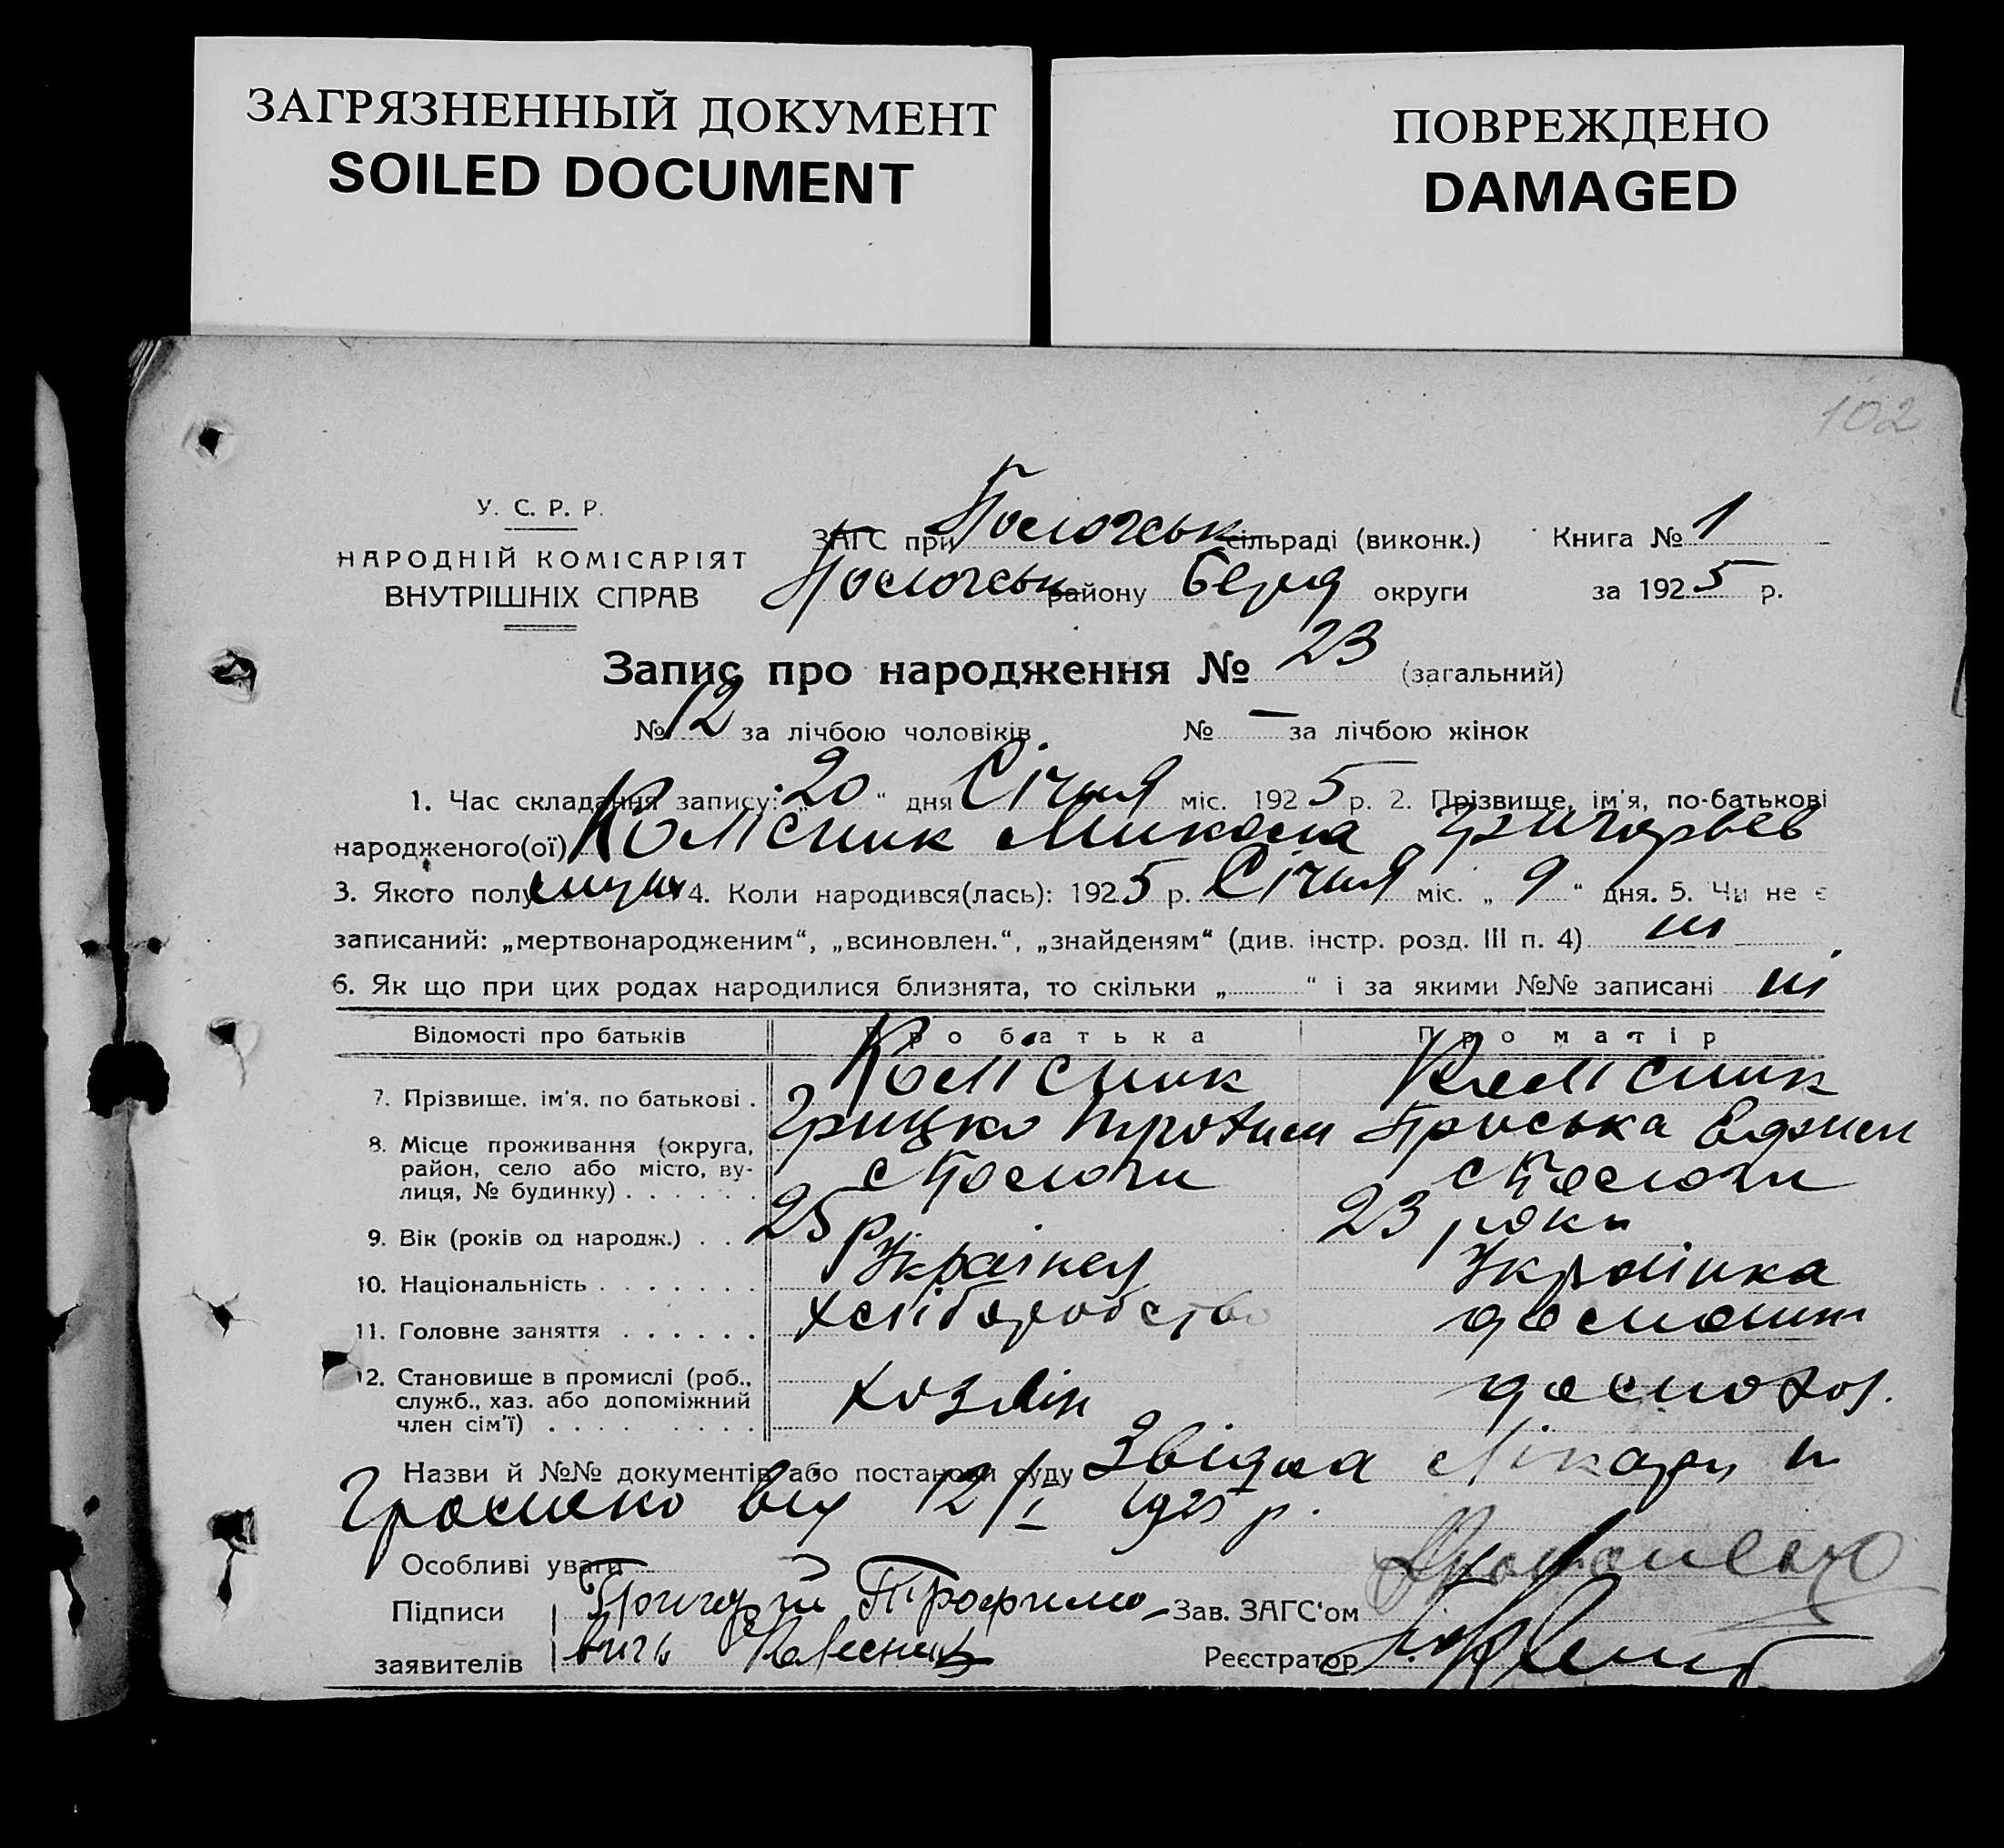 ЗАГРЯЗНЕННЫЙ ДОКУМЕНТ
SOILED DOCUMENT
ПОВРЕЖДЕНО
DAMAGED
102
У. С. Р. Р.
НАРОДНІЙ КОМІСАРІЯТ
ВНУТРІШНІХ СПРАВ
ЗАГС при Пологськ сільраді (виконк.) Книга № 1
Пологськ району Берд округи за 1925 р.
Запис про народження № 23 (загальний)
№ 12 за лічбою чоловіків № — за лічбою жінок
1. Час складання запису: „20“ дня Січня міс. 1925 р. 2. Прізвище, ім'я, по-батькові
народженого(ої) Колісник Микола Григорьев
3. Якого полу муж 4. Коли народився(лась): 1925 р. Січня міс. „9“ дня. 5. Чи не є
записаний: „мертвонародженим“, „всиновлен.“, „знайденям“ (див. інстр. розд. III п. 4) ні
6. Як що при цих родах народилися близнята, то скільки „ “ і за якими №№ записані ні
Відомості про батьків Про батька Про матір
7. Прізвище, ім'я, по батькові . Колісник Колісник
Грицко Трохим Приська
8. Місце проживання (округа,
район, село або місто, ву-
лиця, № будинку) . . . . . . с Пологи с Пологи
9. Вік (років од народж.) . . . 25 р 23 роки
10. Національність . . . . . . . Українец Українка
11. Головне заняття . . . . . . хліборобство домашнє
12. Становище в промислі (роб.,
служб., хаз. або допоміжний
член сім'ї) . . . . . . . . . хозяін
Назви й №№ документів або постанови суду Звідка Лікаря
від 12/I 1925 р.
Особливі уваги
Підписи Григорій Трофимо- Зав. ЗАГС'ом
заявителів вичь Колесник Реєстратор